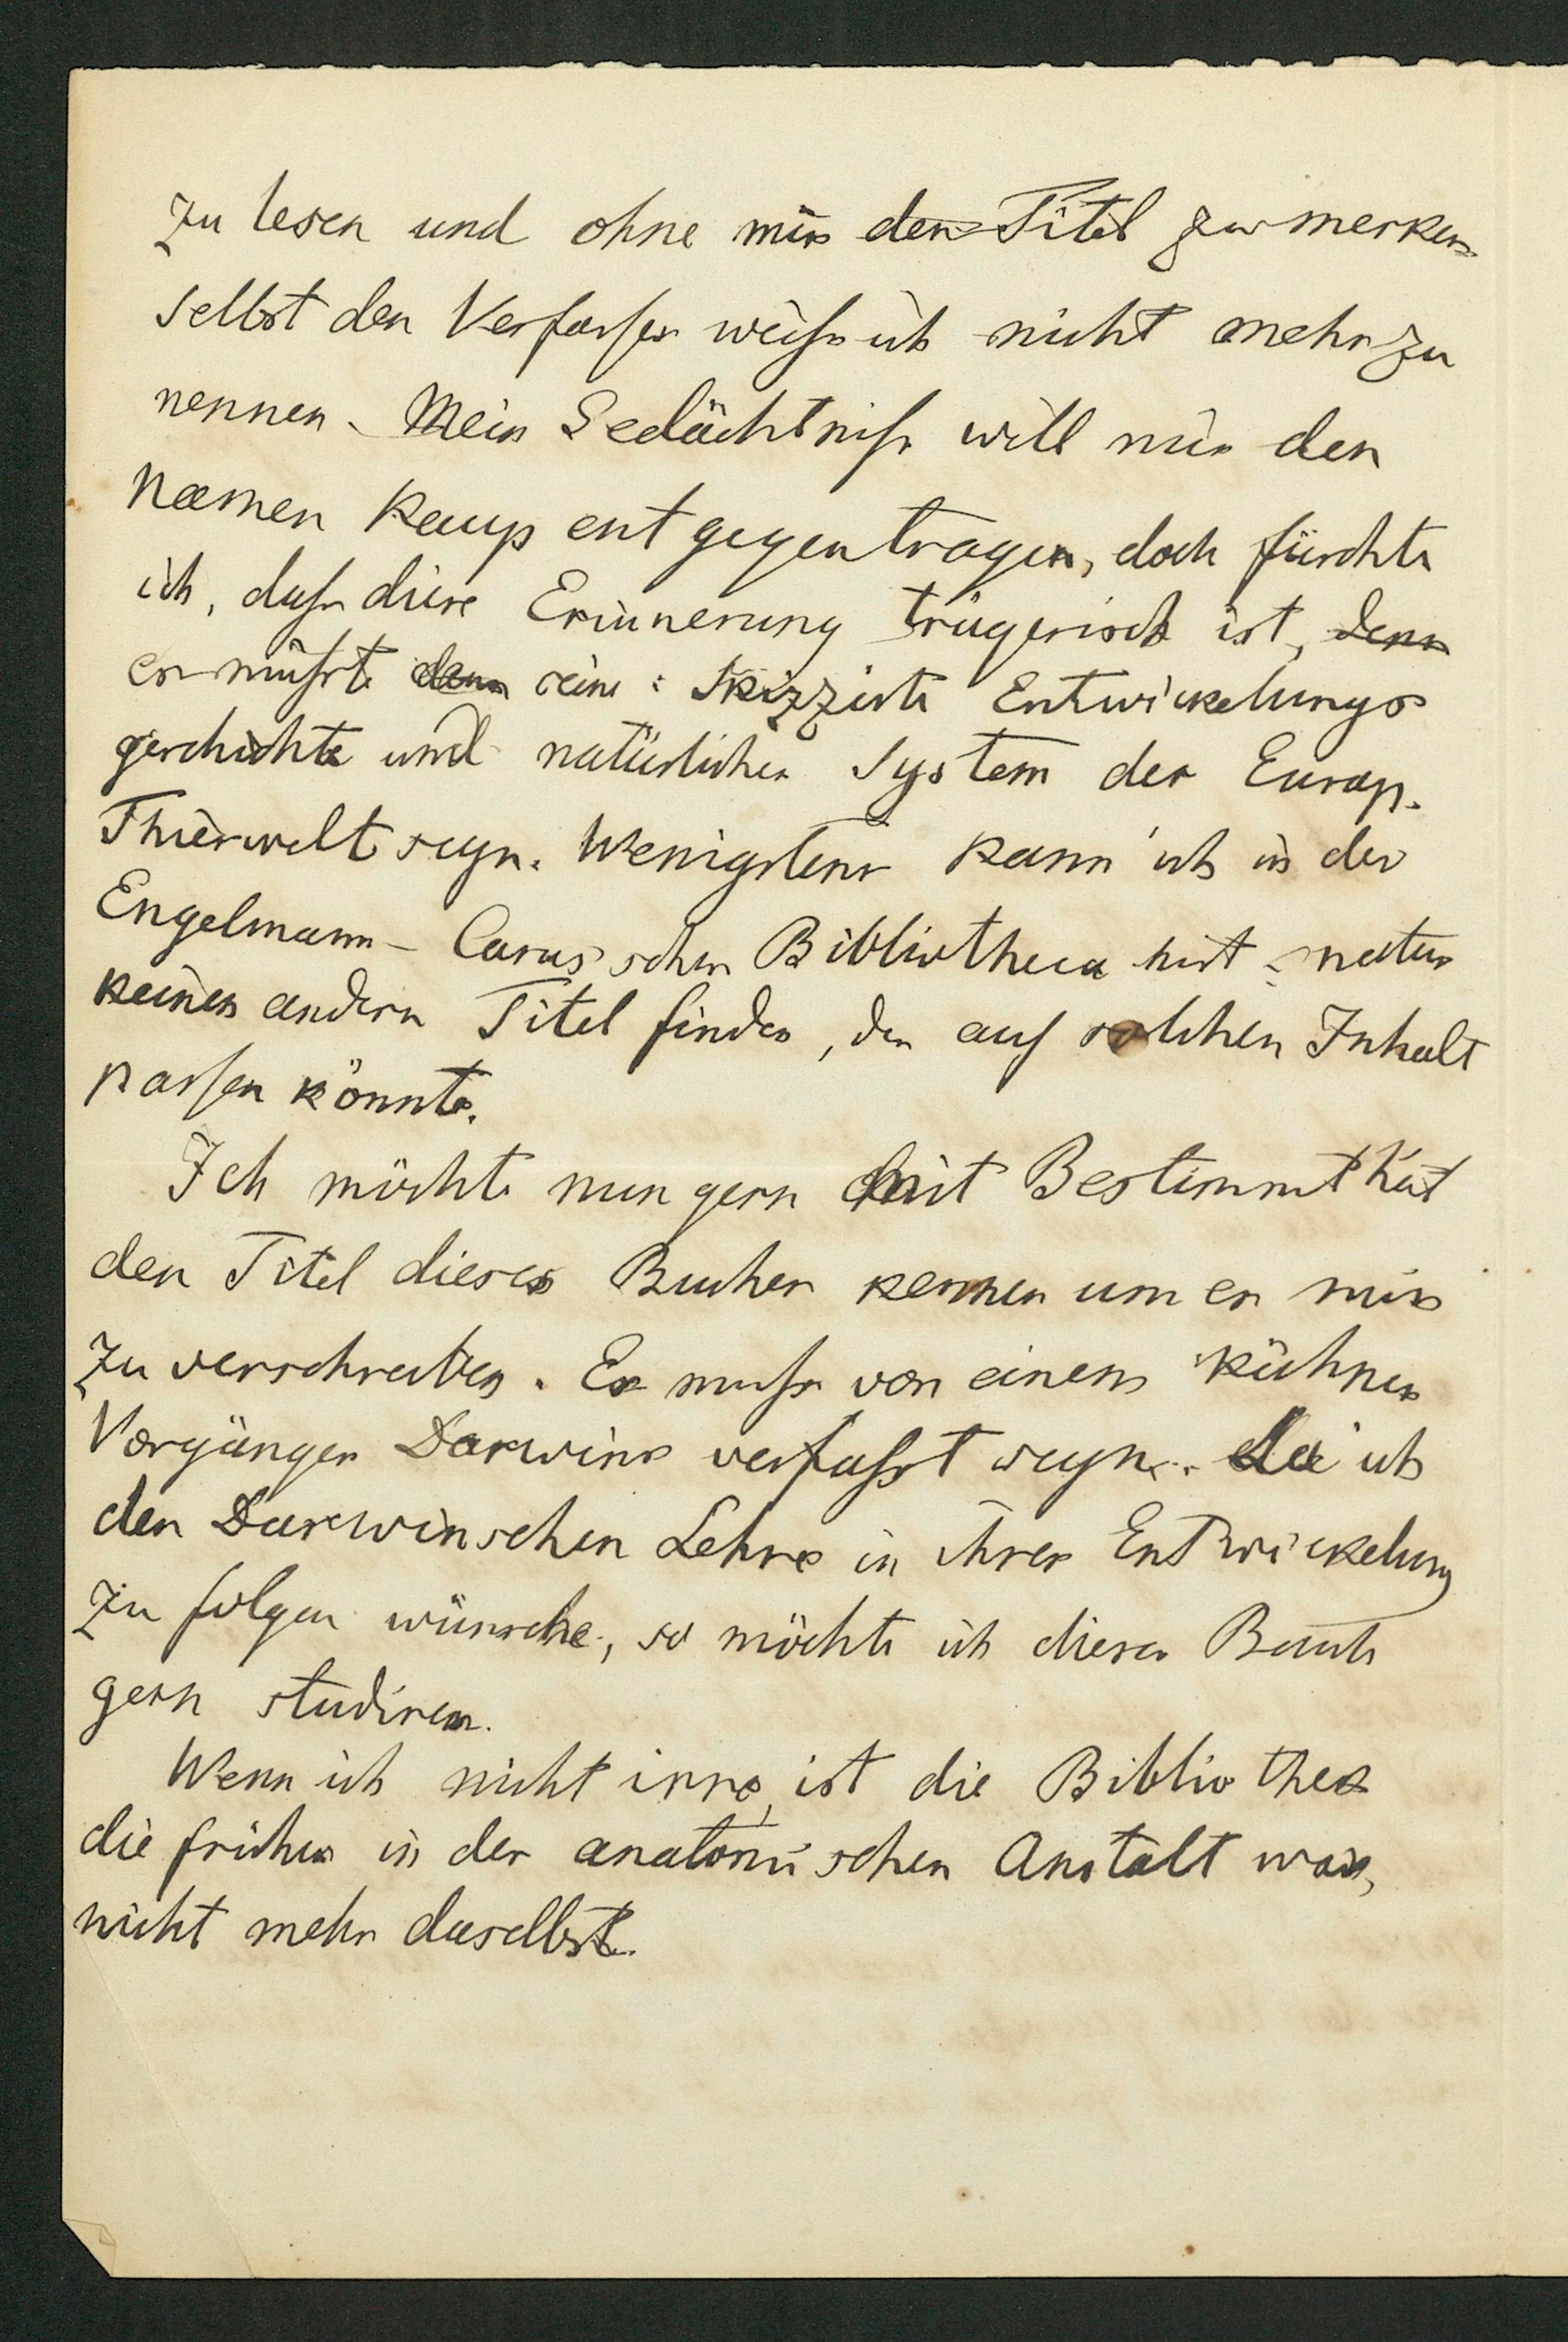 zu lesen und ohne mir den Titel zu merken
selbst den Verfasser weiß ich nicht mehr zu
nennen. Mein Gedächtniß will mir den
Namen Kaup entgegentragen, doch fürchte
ich, daß diese Erinnerung trügerisch ist, denn
es müßte denn seine: Skizzirte Entwickelungs
geschichte und natürliches System der Europ.
Thierwelt seyn. Wenigstens kann ich in der
Engelmann-Carus'schen Bibliotheca hist. natur
keinen andern Titel finden, der auf solchen Inhalt
passen könnte.
Ich möchte nun gern mit Bestimmtheit
den Titel dieses Buches kennen um es mir
zu verschreiben. Es muß von einem kühnen
Vorgänger Darwins verfaßt seyn. Da ich
der Darwinschen Lehre in ihrer Entwickelung
zu folgen wünsche, so möchte ich dieses Buch
gern studiren.
Wenn ich nicht irre, ist die Bibliothek
die früher in der anatomischen Anstalt war,
nicht mehr daselbst.